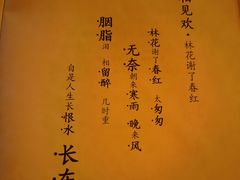 相见欢·林花谢了春红
林花谢了春红
太匆匆
无奈朝来寒雨晚来风
胭脂泪
相留醉
几时重
自是人生长恨水
长东